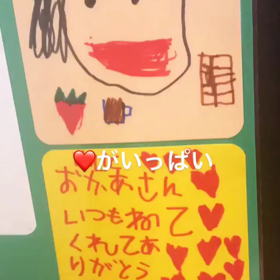 ❤️がいっぱい
おかあさん
いつもねて
くれてあ
りがとう